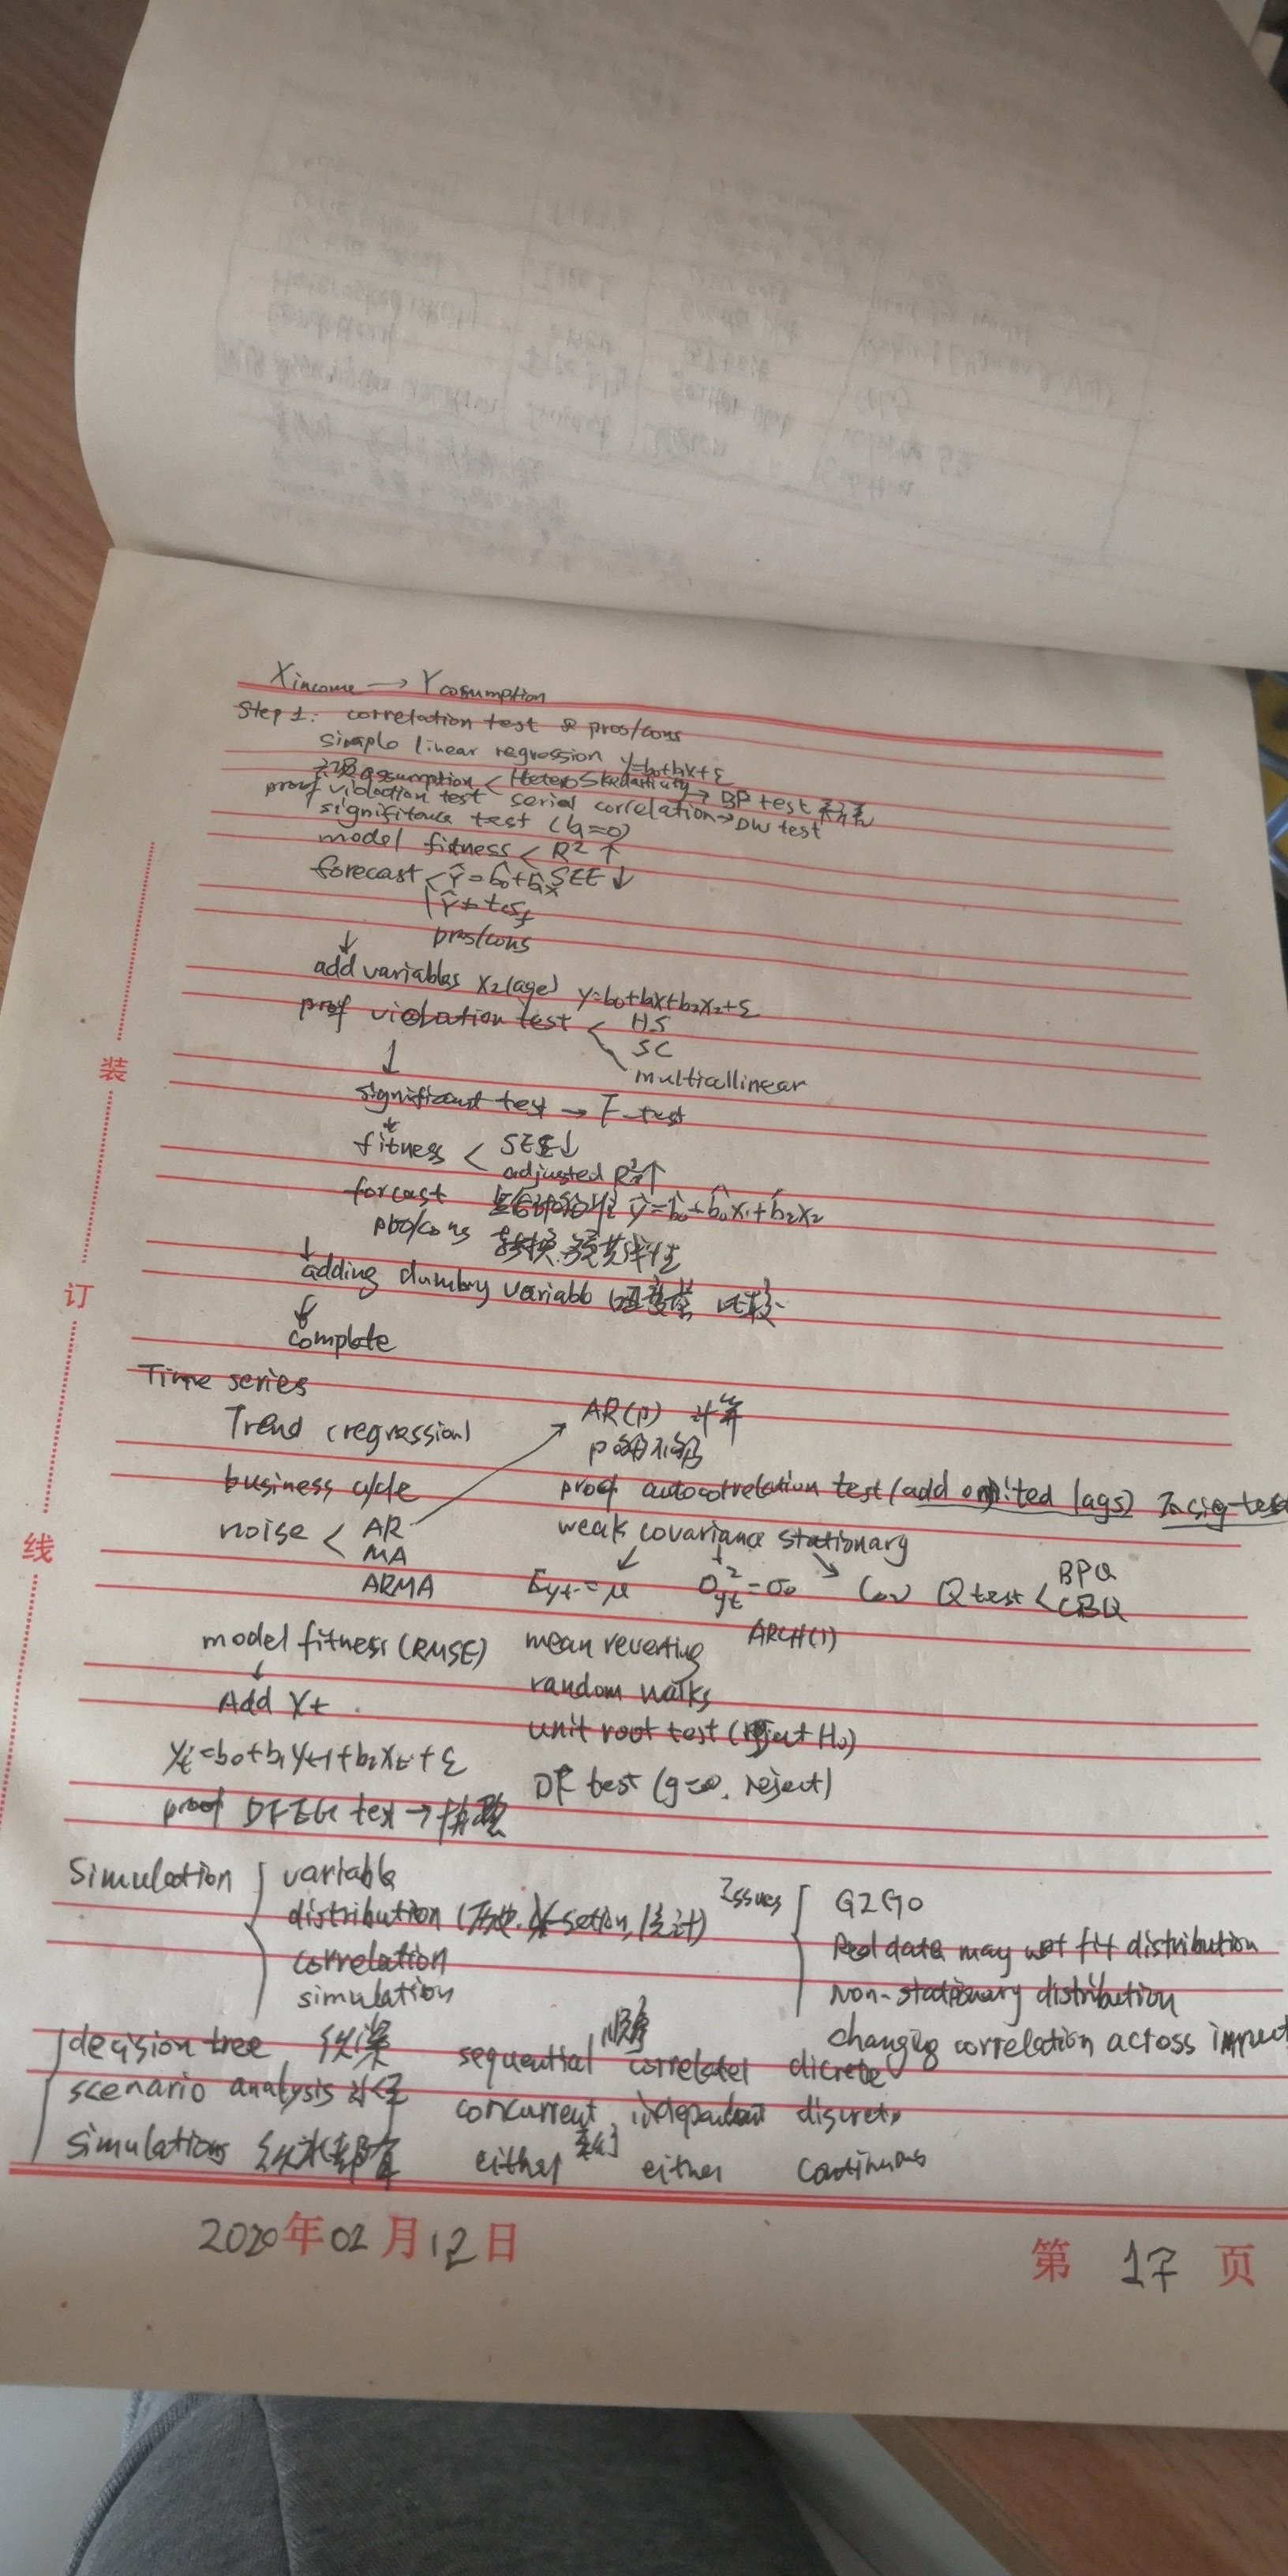 X income → Y cosumption
Step 1: correlation test & pros/cons
simple linear regression y=b0+b1x+ε
assumption < HeteroSkedasticity → BP test
proof violation test serial correlation → DW test
significance test (b1=0)
model fitness < R² ↑
SEE ↓
forecast < Ŷ=b̂0+b̂1x
Ŷ± tcsf
pros/cons
↓
add variables X2(age) y=b0+b1x+b2x2+ε
prof violation test < HS
SC
multicollinear
↓
significant test → F-test
↓
fitness < SEE↓
adjusted R²↑
forcast ŷ=b̂0+b̂0x1+b̂2x2
pro/cons 转换
↓
adding dumby variable 比较
↓
complete
装
订
线
Time series
Trend (regression)
business cycle
noise < AR
MA
ARMA
AR(p) 计算
proof autocorrelation test (add omited lags) sig-test
weak covariance stationary
Eyt=μ σ²yt=σ0 Cov Q test < BPQ
ARCH(1)
model fitness (RMSE)
↓
Add Xt
yt=b0+b1yt-1+b2xt+ε
proof DFEG test →
mean reverting
random walks
unit root test (reject H0)
DF test (g=0, reject)
Simulation { variable
distribution (历史, X-setion, 估计)
correlation
simulation
Issues { GIGO
Real data may not fit distribution
Non-stationary distribution
changing correlation across imput
decision tree sequential 顺序 correlated dicrete
scenario analysis concurrent independent discrete
simulations either either continuous
2020年02月12日
第 17 页